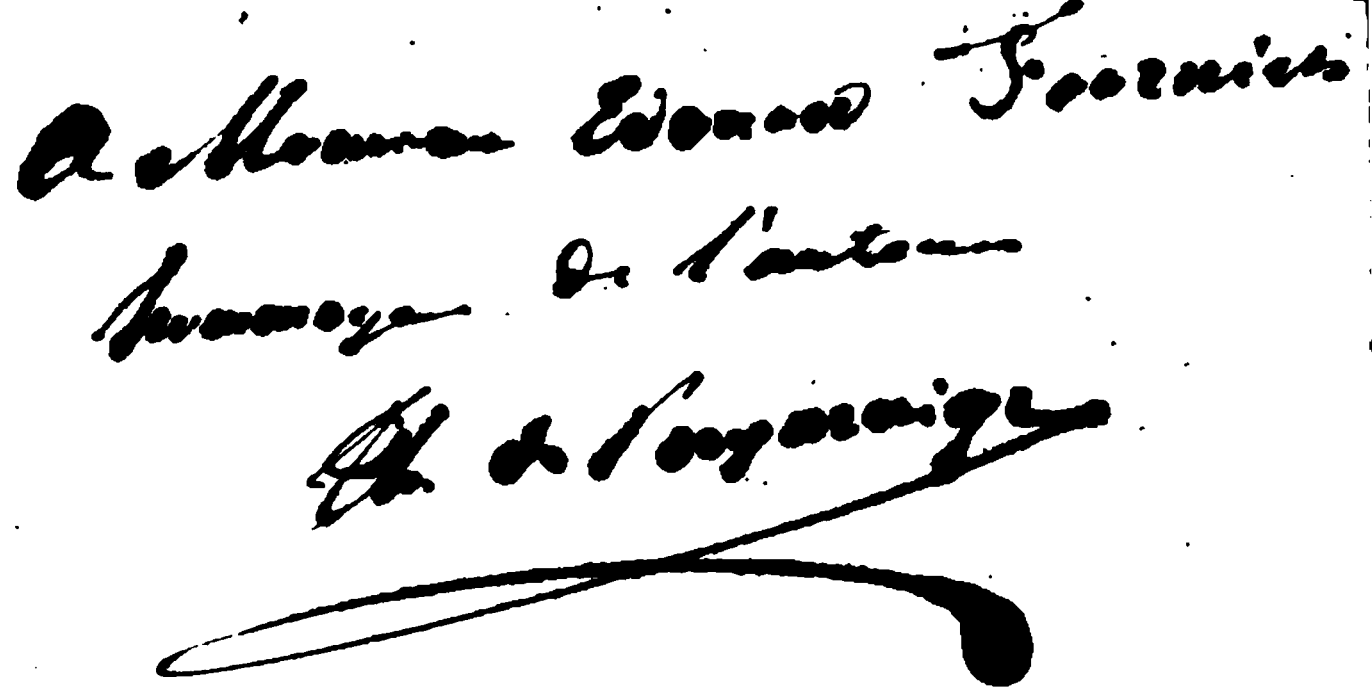 A Monsieur Edouard Fournier
hommage de l'auteur
Th de Puymaigre